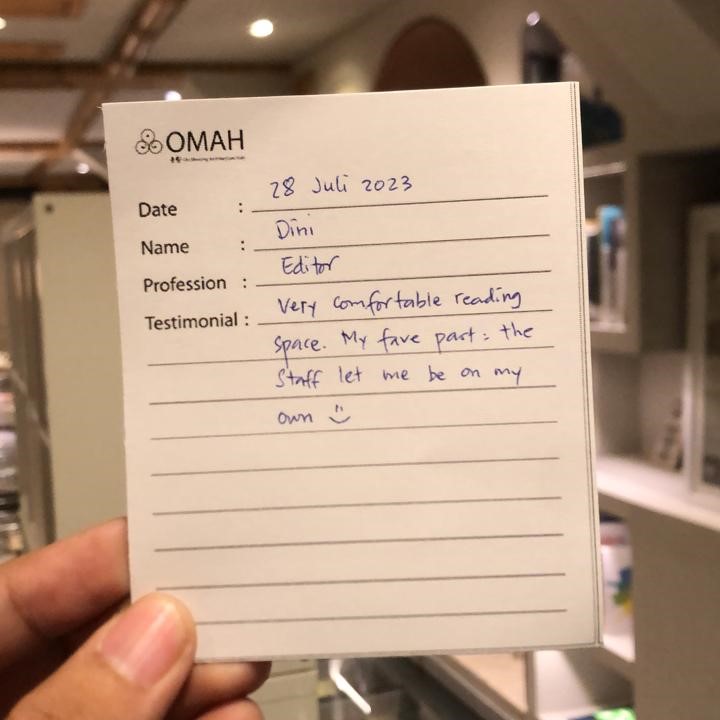 OMAH
28 Juli 2023
Date :
Dini
Name :
Editor
Profession :
Very comfortable reading
Testimonial :
space. My fave part : the
Staff let me be on my
own